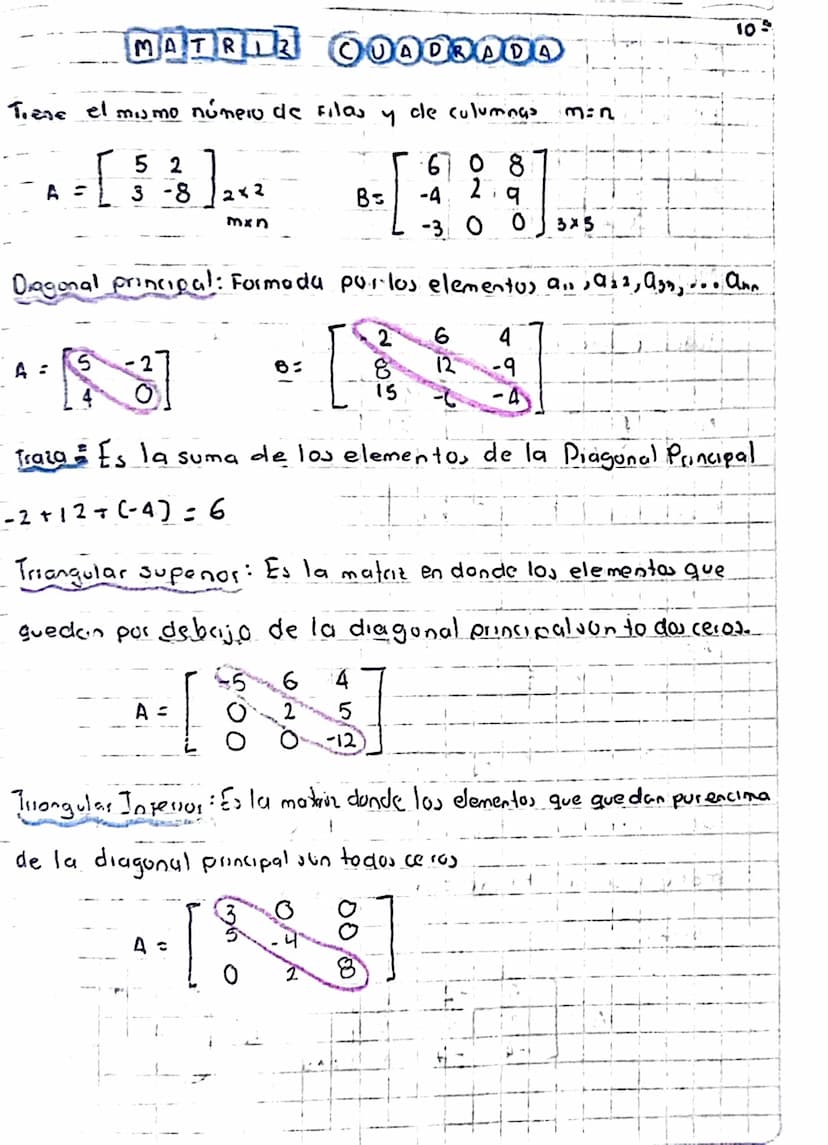 10º
MATRIZ CUADRADA
Tiene el mismo número de filas y de columnas m=n
A = [ 5 2
3 -8 ] 2x2
mxn
B= [ 6 0 8
-4 2 9
-3 0 0 ] 3x3
Diagonal principal: Formada por los elementos a₁₁, a₂₂, a₃₃, ... aₙₙ
A = [ 5 -2
4 0 ]
B= [ -2 6 4
8 12 -9
15 -6 -4 ]
Traza = Es la suma de los elementos de la Diagonal Principal
-2+12+(-4) = 6
Triangular superior: Es la matriz en donde los elementos que
quedan por debajo de la diagonal principal son todos ceros.
A = [ -5 6 4
0 2 5
0 0 -12 ]
Triangular Inferior: Es la matriz donde los elementos que quedan por encima
de la diagonal principal son todos ceros
A = [ 3 0 0
5 -4 0
0 2 8 ]